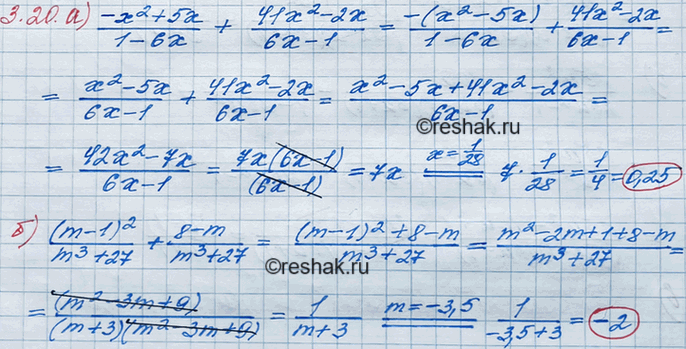 3.20. а) (-x²+5x)/(1-6x) + (41x²-2x)/(6x-1) = (-(x²-5x))/(1-6x) + (41x²-2x)/(6x-1) =
= (x²-5x)/(6x-1) + (41x²-2x)/(6x-1) = (x²-5x+41x²-2x)/(6x-1) =
©reshak.ru
= (42x²-7x)/(6x-1) = (7x(6x-1))/((6x-1)) = 7x x=1/28 7·1/28 = 1/4 = 0,25
б) (m-1)²/(m³+27) + (8-m)/(m³+27) = ((m-1)²+8-m)/(m³+27) = (m²-2m+1+8-m)/(m³+27) =
©reshak.ru
= (m²-3m+9)/((m+3)(m²-3m+9)) = 1/(m+3) m=-3,5 1/(-3,5+3) = -2